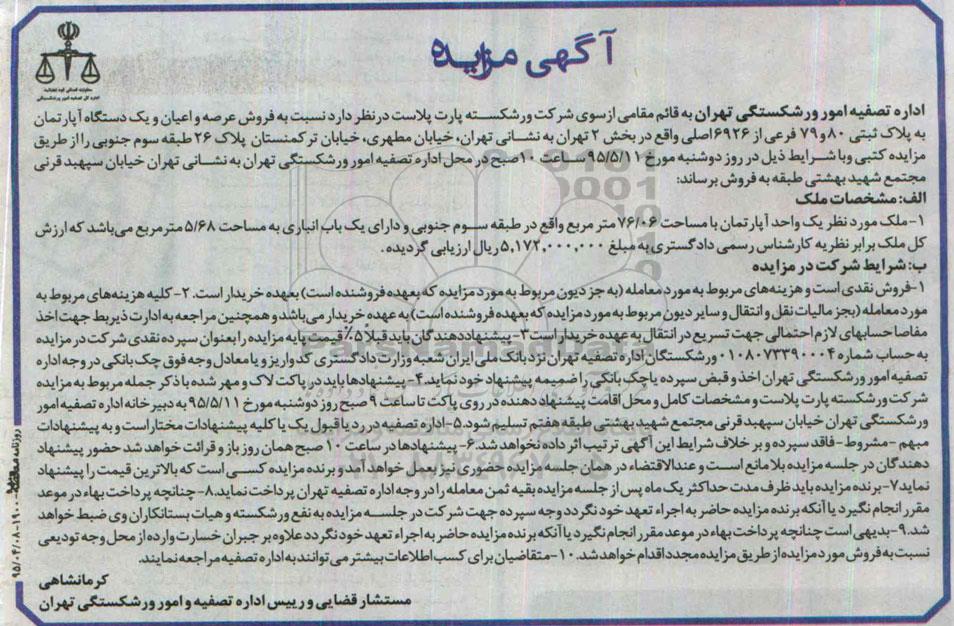 آگهی مزایده
معاونت قضائی قوه قضائیه
اداره کل تصفیه امور ورشکستگی
اداره تصفیه امور ورشکستگی تهران به قائم مقامی از سوی شرکت ورشکسته پارت پلاست در نظر دارد نسبت به فروش عرصه و اعیان و یک دستگاه آپارتمان
به پلاک ثبتی ۸۰ و ۷۹ فرعی از ۶۹۲۶ اصلی واقع در بخش ۲ تهران به نشانی تهران، خیابان مطهری، خیابان ترکمنستان پلاک ۲۶ طبقه سوم جنوبی را از طریق
مزایده کتبی و با شرایط ذیل در روز دوشنبه مورخ ۹۵/۵/۱۱ ساعت ۱۰ صبح در محل اداره تصفیه امور ورشکستگی تهران به نشانی تهران خیابان سپهبد قرنی
مجتمع شهید بهشتی طبقه به فروش برساند:
الف: مشخصات ملک
۱- ملک مورد نظر یک واحد آپارتمان با مساحت ۷۶/۰۶ متر مربع واقع در طبقه سوم جنوبی و دارای یک باب انباری به مساحت ۵/۶۸ متر مربع می‌باشد که ارزش
کل ملک برابر نظریه کارشناس رسمی دادگستری به مبلغ ۵,۱۷۲,۰۰۰,۰۰۰ ریال ارزیابی گردیده.
ب: شرایط شرکت در مزایده
۱- فروش نقدی است و هزینه‌های مربوط به مورد معامله (به جز دیون مربوط به مورد مزایده که بعهده فروشنده است) بعهده خریدار است. ۲- کلیه هزینه‌های مربوط به
مورد معامله (بجز مالیات نقل و انتقال و سایر دیون مربوط به مورد مزایده که بعهده فروشنده است) به عهده خریدار می‌باشد و همچنین مراجعه به ادارت ذیربط جهت اخذ
مفاصا حسابهای لازم احتمالی جهت تسریع در انتقال به عهده خریدار است ۳- پیشنهاددهندگان باید قبلاً ۵٪ قیمت پایه مزایده را بعنوان سپرده نقدی شرکت در مزایده
به حساب شماره ۰۱۰۸۰۷۳۳۹۰۰۰۴ ورشکستگان اداره تصفیه تهران نزد بانک ملی ایران شعبه وزارت دادگستری کد واریز و یا معادل وجه فوق چک بانکی در وجه اداره
تصفیه امور ورشکستگی تهران اخذ و قبض سپرده یا چک بانکی را ضمیمه پیشنهاد خود نماید. ۴- پیشنهادها باید در پاکت لاک و مهر شده با ذکر جمله مربوط به مزایده
شرکت ورشکسته پارت پلاست و مشخصات کامل و محل اقامت پیشنهاد دهنده در روی پاکت تا ساعت ۹ صبح روز دوشنبه مورخ ۹۵/۵/۱۱ به دبیرخانه اداره تصفیه امور
ورشکستگی تهران خیابان سپهبد قرنی مجتمع شهید بهشتی طبقه هفتم تسلیم شود. ۵- اداره تصفیه در رد یا قبول یک یا کلیه پیشنهادات مختار است و به پیشنهادات
مبهم - مشروط - فاقد سپرده و بر خلاف شرایط این آگهی ترتیب اثر داده نخواهد شد. ۶- پیشنهادها در ساعت ۱۰ صبح همان روز باز و قرائت خواهد شد حضور پیشنهاد
دهندگان در جلسه مزایده بلامانع است و عندالاقتضاء در همان جلسه مزایده حضوری نیز بعمل خواهد آمد و برنده مزایده کسی است که بالاترین قیمت را پیشنهاد
نماید ۷- برنده مزایده باید ظرف مدت حداکثر یک ماه پس از جلسه مزایده بقیه ثمن معامله را در وجه اداره تصفیه تهران پرداخت نماید. ۸- چنانچه پرداخت بهاء در موعد
مقرر انجام نگیرد یا آنکه برنده مزایده حاضر به اجراء تعهد خود نگردد وجه سپرده جهت شرکت در جلسه مزایده به نفع ورشکسته و هیات بستانکاران وی ضبط خواهد
شد. ۹- بدیهی است چنانچه پرداخت بهاء در موعد مقرر انجام نگیرد یا آنکه برنده مزایده حاضر به اجراء تعهد خود نگردد علاوه بر جبران خسارت وارده از محل وجه تودیعی
نسبت به فروش مورد مزایده از طریق مزایده مجدد اقدام خواهد شد. ۱۰- متقاضیان برای کسب اطلاعات بیشتر می‌توانند به اداره تصفیه مراجعه نمایند.
کرمانشاهی
مستشار قضایی و رییس اداره تصفیه و امور ورشکستگی تهران